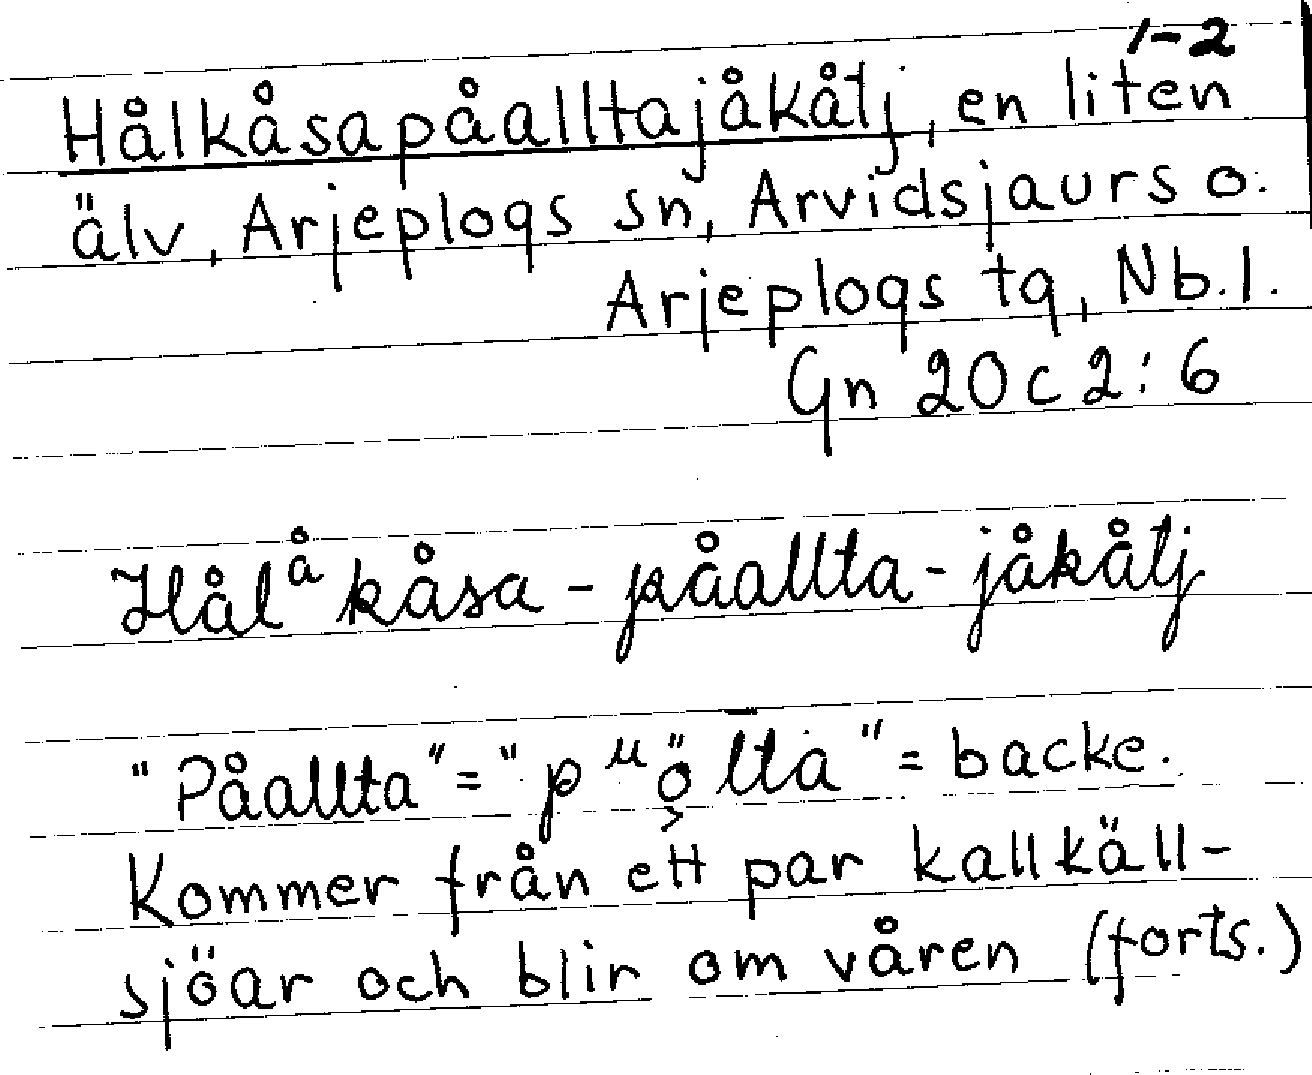 1-2
Hålkåsapåalltajåkåtj, en liten
älv, Arjeplogs sn, Arvidsjaurs o.
Arjeplogs tg, Nb.l.
Gn 20c2:6
Hålåkåsa - påallta - jåkåtj
"Påallta" = "pᵘö̜lta" = backe.
Kommer från ett par kallkäll-
sjöar och blir om våren (forts.)